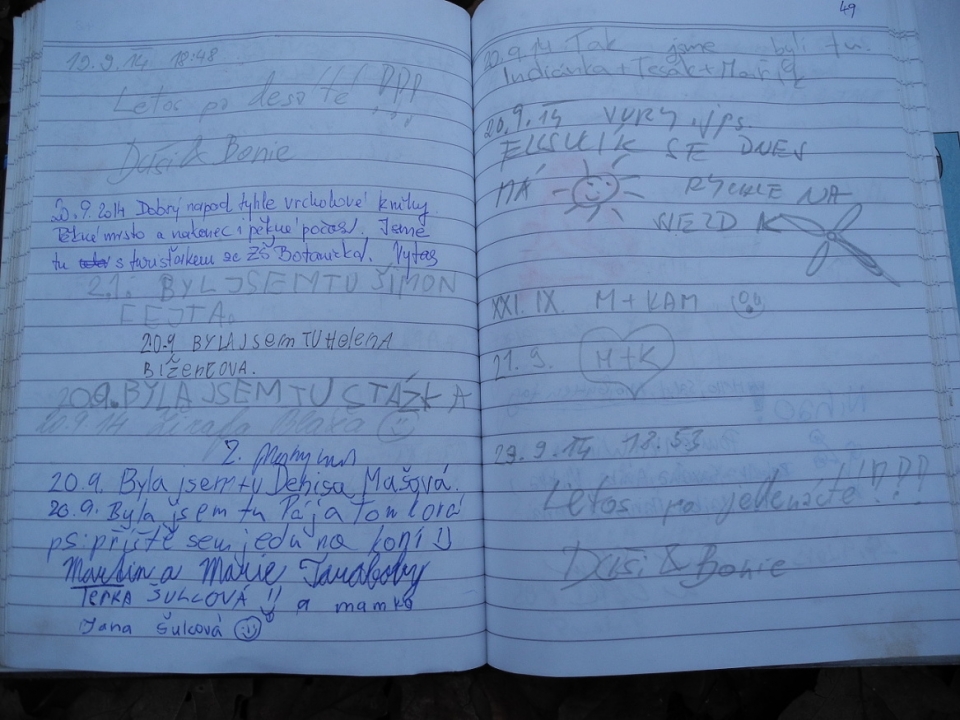 19.9.14 18:48
Letos po desáté !!!
Daši & Bonie
20.9.2014 Dobrý nápad tyhle vrcholové knihy.
Pěkné místo a nakonec i pěkné počasí. Jsme
tu s turisťákem ze ZŠ Botanická. Vytas
21. BYL JSEM TU ŠIMON
FEJTA.
20.9 BYLA JSEM TU HELENA
20.9. BYLA JSEM TU STÁZKA
20.9.14 Žirafa
20.9. Byla jsem tu Denisa Mašová.
20.9. Byla jsem tu Pája
ps: příště sem jedu na koni !)
Martin a Marie
TERKA ŠULCOVÁ !! a mamka
Jana Šulcová
49
20.9.14 Tak jsme byli tu.
Indiánka + Tesák + Mařka
20.9.14
SE DNES
MÁ RYCHLE NA
XXI. IX. M + KAM
21. 9. M+K
29.9.14 18.53
Letos po jedenácté !!!
Daši & Bonie